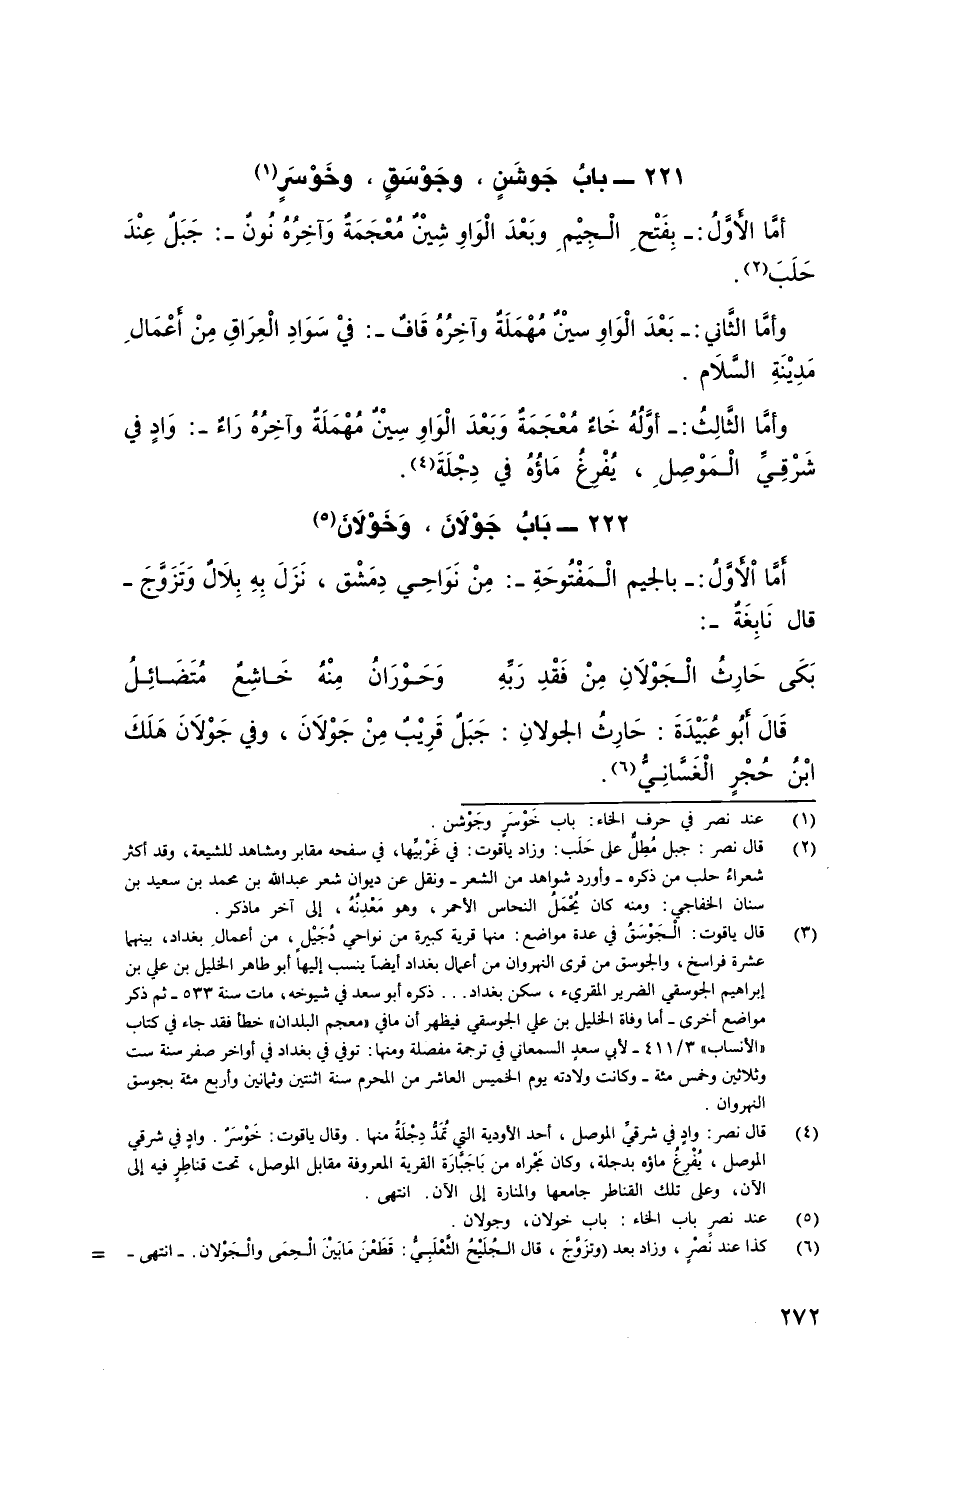 ٢٢١ ــ بابُ جَوشَنٍ ، وجَوْسَقٍ ، وخَوْسَرٍ(١)
أمَّا الأَوَّلُ :ـ بِفَتْحِ الْـجِيْمِ وبَعْدَ الْوَاوِ شِيْنٌ مُعْجَمَةٌ وَآخِرُهُ نُونٌ ـ: جَبَلٌ عِنْدَ
حَلَبَ(٢).
وأمَّا الثَّاني :ـ بَعْدَ الْوَاوِ سيْنٌ مُهْمَلَةٌ وآخِرُهُ قَافٌ ـ: فيْ سَوَادِ الْعِرَاقِ مِنْ أَعْمَالِ
مَدِيْنَةِ السَّلَامِ .
وأمَّا الثَّالِثُ :ـ أوَّلُهُ خَاءٌ مُعْجَمَةٌ وَبَعْدَ الْوَاوِ سِيْنٌ مُهْمَلَةٌ وآخِرُهُ رَاءٌ ـ: وَادٍ في
شَرْقِيِّ الْـمَوْصِلِ ، يُفْرِغُ مَاؤُهُ في دِجْلَةَ(٤).
٢٢٢ ــ بَابُ جَوْلَانَ ، وَخَوْلَانَ(٥)
أَمَّا اْلأَوَّلُ :ـ بالجيم الْـمَفْتُوحَةِ ـ: مِنْ نَوَاحِـي دِمَشْق ، نَزَلَ بِهِ بِلَالٌ وَتَزَوَّجَ ـ
قال نَابِغَةٌ ـ:
بَكَى حَارِثُ الْـجَوْلَانِ مِنْ فَقْدِ رَبِّهِ وَحَـوْرَانُ مِنْهُ خَـاشِعٌ مُتَضَـائِـلُ
قَالَ أَبُو عُبَيْدَةَ : حَارِثُ الجولانِ : جَبَلٌ قَرِيْبٌ مِنْ جَوْلَانَ ، وفي جَوْلَانَ هَلَكَ
ابْنُ حُجْرٍ الْغَسَّانِـيُّ(٦).
(١) عند نصر في حرف الخاء: باب خَوْسَرٍ وجَوْشن .
(٢) قال نصر : جبل مُطِلٌّ على حَلَب: وزاد ياقوت: في غَرْبِيِّها، في سفحه مقابر ومشاهد للشيعة، وقد أكثر
شعراءُ حلب من ذكره ـ وأورد شواهد من الشعر ـ ونقل عن ديوان شعر عبدالله بن محمد بن سعيد بن
سنان الخفاجي: ومنه كان يُحْمَلُ النحاس الأحمر ، وهو مَعْدِنُهُ ، إلى آخر ماذكر .
(٣) قال ياقوت: الْـجَوْسَقُ في عدة مواضع: منها قرية كبيرة من نواحي دُجَيْلٍ ، من أعمالِ بغداد، بينهما
عشرة فراسخ ، والجوسق من قرى النهروان من أعمال بغداد أيضاً ينسب إليها أبو طاهر الخليل بن علي بن
إبراهيم الجوسقي الضرير المقريء ، سكن بغداد. . . ذكره أبو سعد في شيوخه، مات سنة ٥٣٣ ـ ثم ذكر
مواضع أخرى ـ أما وفاة الخليل بن علي الجوسقي فيظهر أن مافي «معجم البلدان» خطأ فقد جاء في كتاب
«الأنساب» ٤١١/٣ ـ لأبي سعدٍ السمعاني في ترجمة مفصلة ومنها: توفي في بغداد في أواخر صفر سنة ست
وثلاثين وخمس مئة ـ وكانت ولادته يوم الخميس العاشر من المحرم سنة اثنتين وثمانين وأربع مئة بجوسق
النهروان .
(٤) قال نصر: وادٍ في شرقيِّ الموصل ، أحد الأودية التي تُمَدُّ دِجْلَةُ منها . وقال ياقوت: خَوْسَرٌ . وادٍ في شرقي
الموصل ، يُفْرِغُ ماؤه بدجلة، وكان مَجْراه من بَاجَبَّارَة القرية المعروفة مقابل الموصل، تحت قناطِرٍ فيه إلى
الآن، وعلى تلك القناطر جامعها والمنارة إلى الآن. انتهى .
(٥) عند نصرٍ باب الخاء : باب خولان، وجولان .
(٦) كذا عند نَصْرٍ ، وزاد بعد (وتزوَّج ، قال الْـجُلَيْحُ الثَّعْلَبِـيُّ : قَطَعْنَ مَابَيْنَ الْـحِمَى والْـجَوْلان. ـ انتهى ـ =
٢٧٢